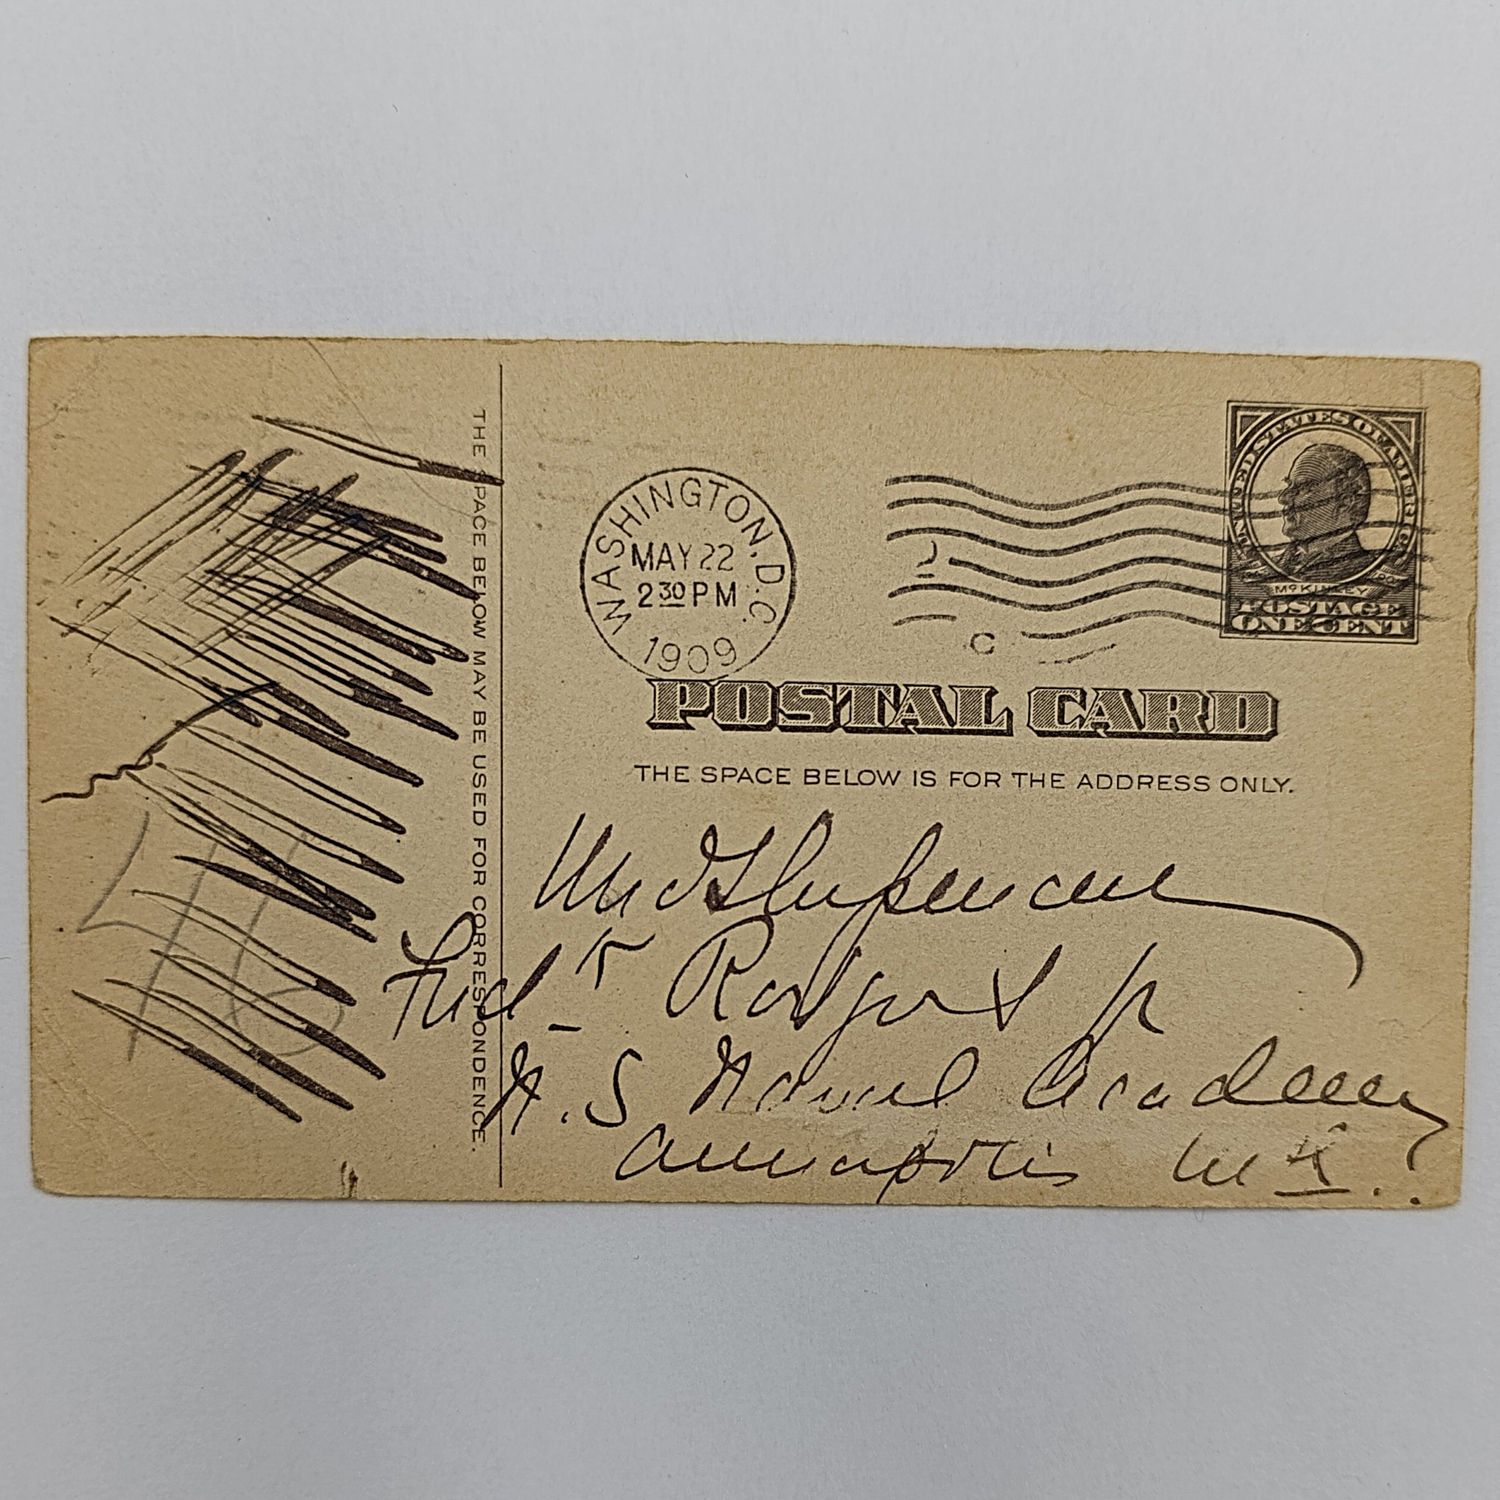 THE SPACE BELOW MAY BE USED FOR CORRESPONDENCE.
WASHINGTON, D.C.
MAY 22
2 30 PM
1909
UNITED STATES OF AMERICA
McKINLEY
POSTAGE
ONE CENT
POSTAL CARD
THE SPACE BELOW IS FOR THE ADDRESS ONLY.
Fred k Rodgers Jr
U.S Naval Academy
Annapolis Md.